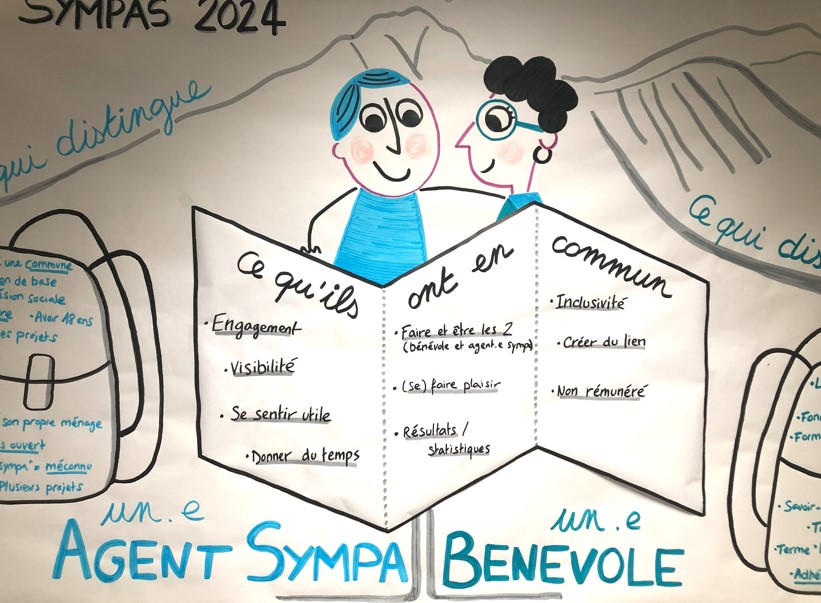 SYMPAS 2024
qui distingue
Ce qui dis
Ce qu'ils ont en commun
• Engagement
• Visibilité
• Se sentir utile
• Donner du temps
• Faire et être les 2
(bénévole et agent.e sympa)
• (se) faire plaisir
• Résultats /
statistiques
• Inclusivité
• Créer du lien
• Non rémunéré
une commune
de base
sion sociale
re • Avoir 18 ans
es projets
son propre ménage
s ouvert
sympa" = méconnu
Plusieurs projets
• Fon
• Form
• Savoir-
• Terme "
• Adhé
un.e
AGENT SYMPA
un.e
BENEVOLE